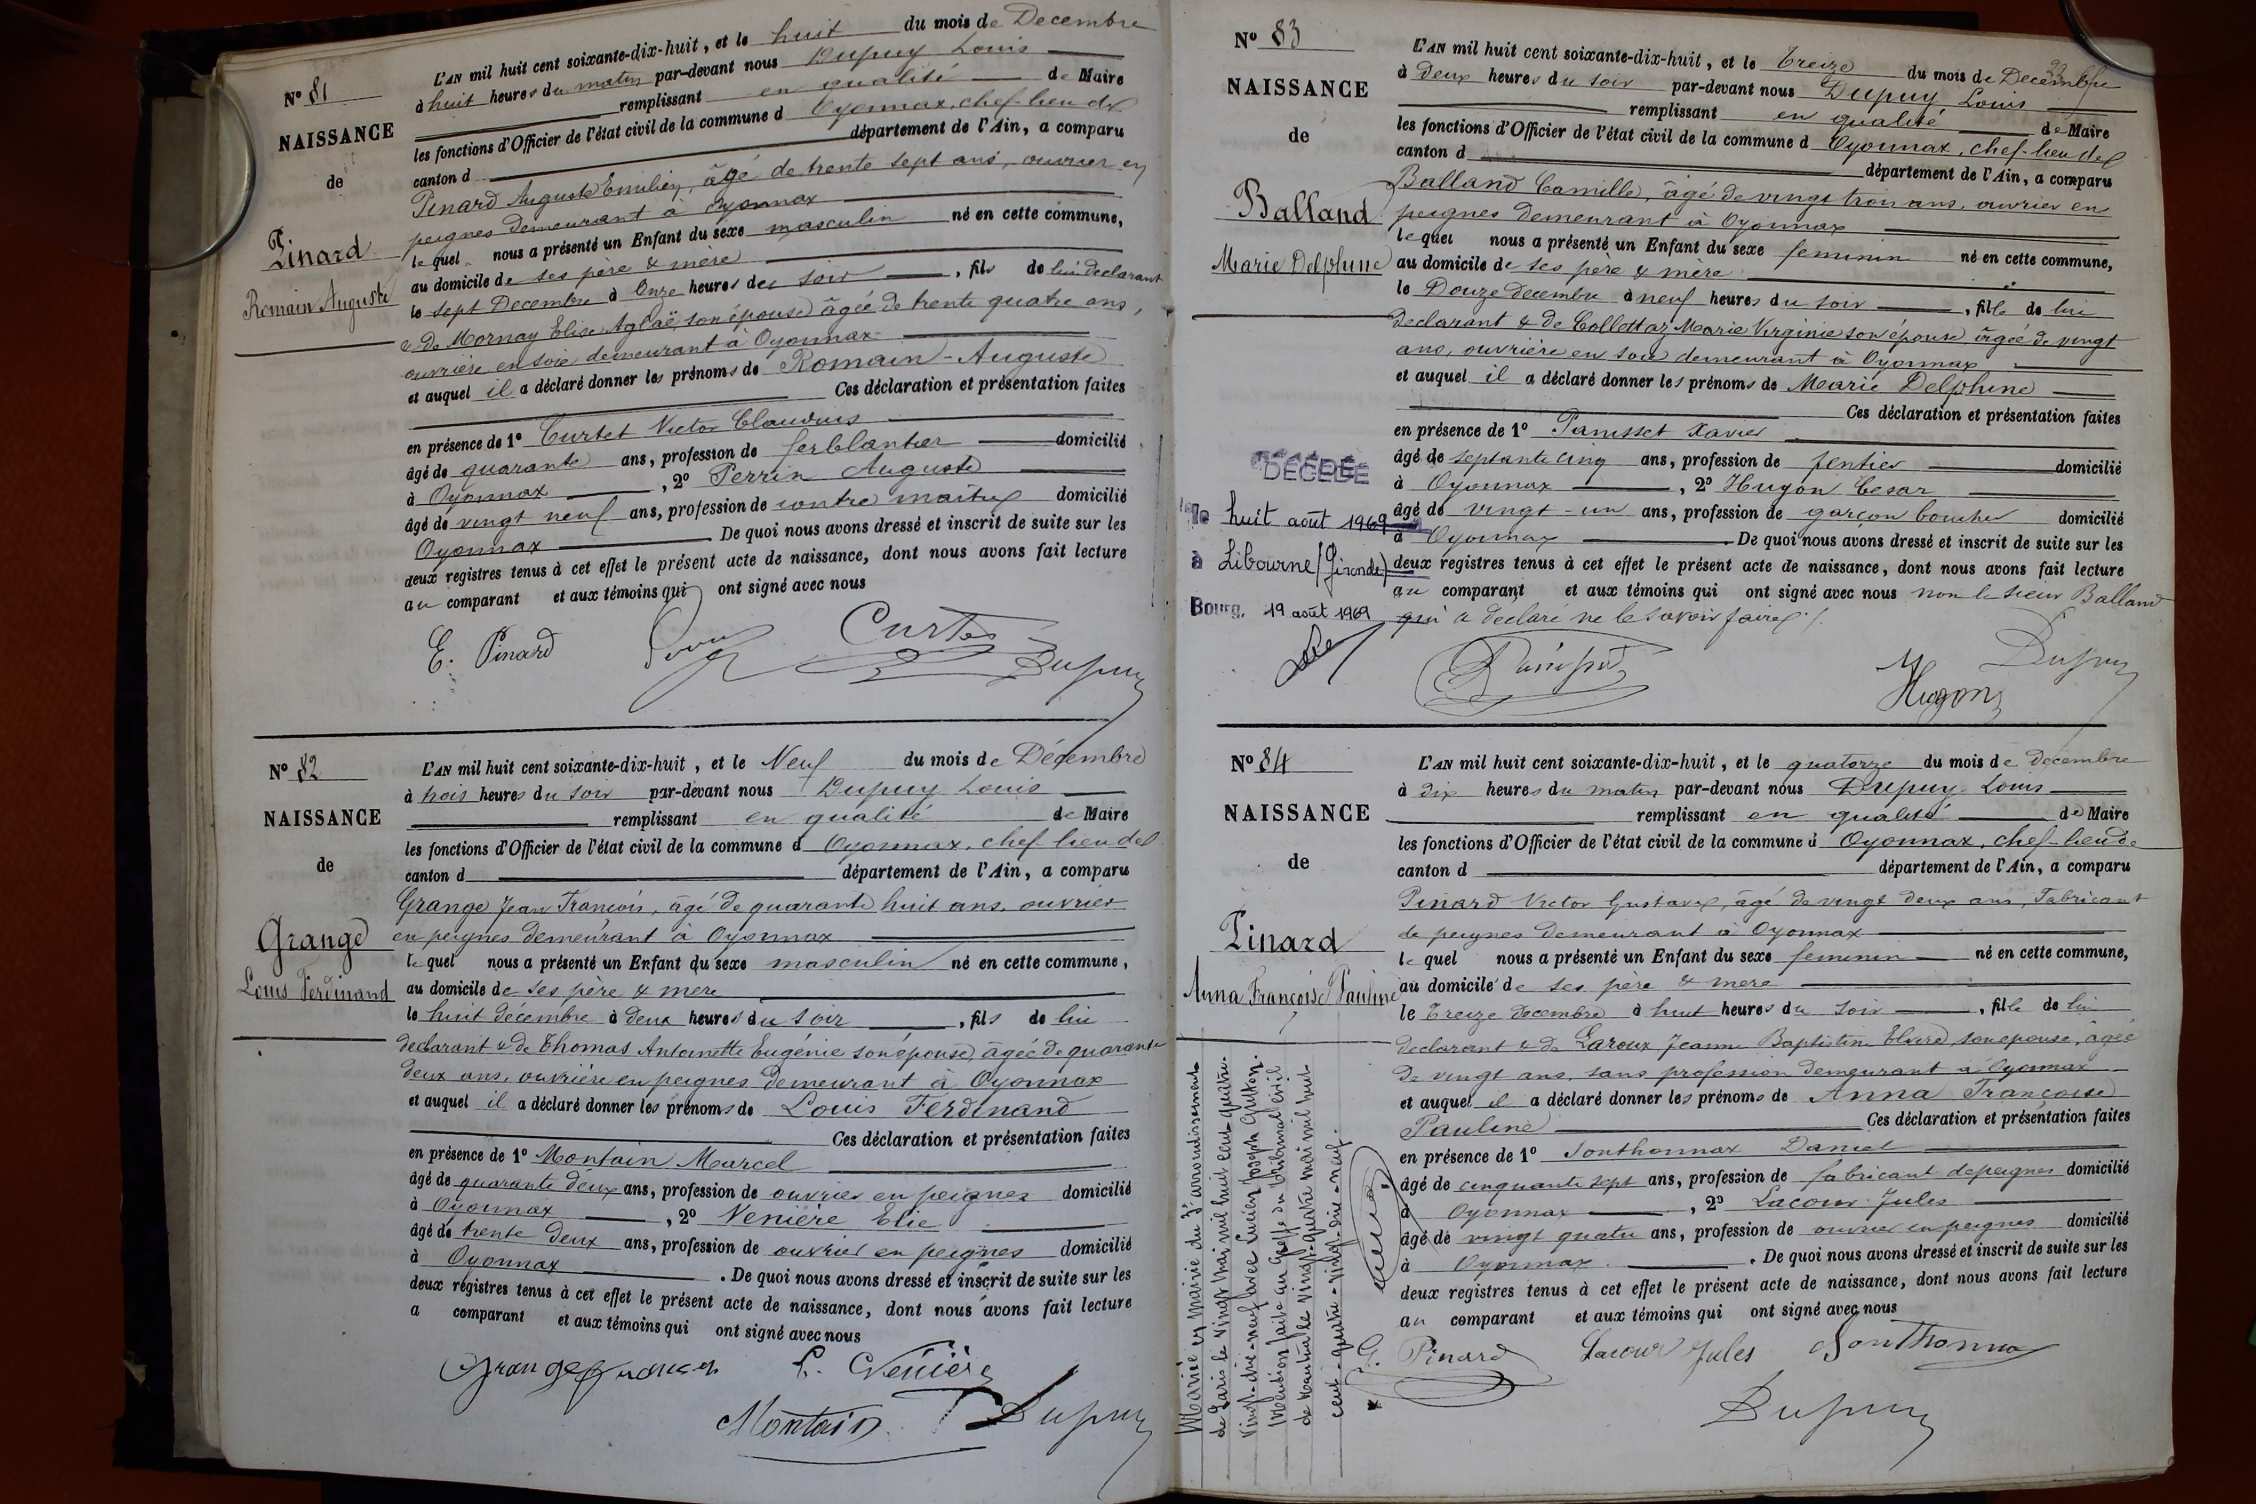 N° 81
NAISSANCE
de
Pinard
Romain Auguste
L'AN mil huit cent soixante-dix-huit, et le huit du mois de Decembre
à huit heures du matin par-devant nous Dupuy Louis
remplissant en qualité de Maire
les fonctions d'Officier de l'état civil de la commune d Oyonnax, chef-lieu de
canton d département de l'Ain, a comparu
Pinard Auguste Emilien, âgé de trente sept ans, ouvrier en
peignes demeurant à Oyonnax
lequel nous a présenté un Enfant du sexe masculin né en cette commune,
au domicile de ses père & mère
le sept Decembre à Onze heures du soir, fils de lui declarant
& de Mornay Elise Aglaë, son épouse âgée de trente quatre ans,
ouvrière en soie demeurant à Oyonnax
et auquel il a déclaré donner les prénoms de Romain-Auguste
Ces déclaration et présentation faites
en présence de 1° Curtet Victor Claudius
âgé de quarante ans, profession de ferblantier domicilié
à Oyonnax, 2° Perrin Auguste
âgé de vingt neuf ans, profession de contre maître domicilié
Oyonnax De quoi nous avons dressé et inscrit de suite sur les
deux registres tenus à cet effet le présent acte de naissance, dont nous avons fait lecture
au comparant et aux témoins qui ont signé avec nous
E. Pinard Curtet
Dupuy
N° 82
NAISSANCE
de
Grange
Louis Ferdinand
L'AN mil huit cent soixante-dix-huit, et le Neuf du mois de Décembre
à trois heures du soir par-devant nous Dupuy Louis
remplissant en qualité de Maire
les fonctions d'Officier de l'état civil de la commune d Oyonnax, chef-lieu de
canton d département de l'Ain, a comparu
Grange Jean François, âgé de quarante huit ans, ouvrier
en peignes demeurant à Oyonnax
lequel nous a présenté un Enfant du sexe masculin né en cette commune,
au domicile de ses père & mère
le huit décembre à deux heures du soir, fils de lui
declarant & de Thomas Antoinette Eugénie son épouse, âgée de quarante
deux ans, ouvrière en peignes demeurant à Oyonnax
et auquel il a déclaré donner les prénoms de Louis Ferdinand
Ces déclaration et présentation faites
en présence de 1° Montain Marcel
âgé de quarante deux ans, profession de ouvrier en peignes domicilié
à Oyonnax, 2° Venière Elie
âgé de trente deux ans, profession de ouvrier en peignes domicilié
à Oyonnax. De quoi nous avons dressé et inscrit de suite sur les
deux registres tenus à cet effet le présent acte de naissance, dont nous avons fait lecture
a comparant et aux témoins qui ont signé avec nous
E. Venière
Montain Dupuy
N° 83
NAISSANCE
de
Balland
Marie Delphine
DÉCÉDÉE
le huit août 1969
à Libourne (Gironde)
Bourg, 19 août 1969
L'AN mil huit cent soixante-dix-huit, et le treize du mois de Decembre
à deux heures du soir par-devant nous Dupuy Louis
remplissant en qualité de Maire
les fonctions d'Officier de l'état civil de la commune d Oyonnax, chef-lieu de
canton d département de l'Ain, a comparu
Balland Camille, âgé de vingt trois ans, ouvrier en
peignes demeurant à Oyonnax
lequel nous a présenté un Enfant du sexe feminin né en cette commune,
au domicile de ses père & mère
le Douze decembre à neuf heures du soir, fille de lui
declarant & de Collettaz Marie Virginie son épouse âgée de vingt
ans, ouvrière en soie demeurant à Oyonnax
et auquel il a déclaré donner les prénoms de Marie Delphine
Ces déclaration et présentation faites
en présence de 1° Panisset Xavier
âgé de septante cinq ans, profession de rentier domicilié
à Oyonnax, 2° Hugon Cesar
âgé de vingt-un ans, profession de garçon boucher domicilié
à Oyonnax. De quoi nous avons dressé et inscrit de suite sur les
deux registres tenus à cet effet le présent acte de naissance, dont nous avons fait lecture
au comparant et aux témoins qui ont signé avec nous non le sieur Balland
qui a declaré ne le savoir faire
Panisset Hugon Dupuy
N° 84
NAISSANCE
de
Pinard
Anna Françoise Pauline
L'AN mil huit cent soixante-dix-huit, et le quatorze du mois de decembre
à dix heures du matin par-devant nous Dupuy Louis
remplissant en qualité de Maire
les fonctions d'Officier de l'état civil de la commune d Oyonnax, chef-lieu de
canton d département de l'Ain, a comparu
Pinard Victor Gustave, âgé de vingt deux ans, Fabricant
de peignes demeurant à Oyonnax
lequel nous a présenté un Enfant du sexe feminin né en cette commune,
au domicile de ses père & mère
le treize decembre à huit heures du soir, fille de lui
declarant & de Laroux Jeanne Baptistine son epouse, âgée
de vingt ans, sans profession demeurant à Oyonnax
et auquel il a déclaré donner les prénoms de Anna Françoise
Pauline Ces déclaration et présentation faites
en présence de 1° Sonthonnax Daniel
âgé de cinquante sept ans, profession de fabricant de peignes domicilié
à Oyonnax, 2° Lacour Jules
âgé de vingt quatre ans, profession de ouvrier en peignes domicilié
à Oyonnax. De quoi nous avons dressé et inscrit de suite sur les
deux registres tenus à cet effet le présent acte de naissance, dont nous avons fait lecture
au comparant et aux témoins qui ont signé avec nous
G. Pinard Lacour Jules Sonthonnax
Dupuy
Mariée en mairie du 3e arrondissement
de Paris le vingt mai mil huit cent quatre-
vingt-dix-neuf avec Lucien Joseph
Mention faite au Greffe du tribunal civil
de Nantua le vingt-quatre mai mil huit
cent-quatre-vingt-dix-neuf.